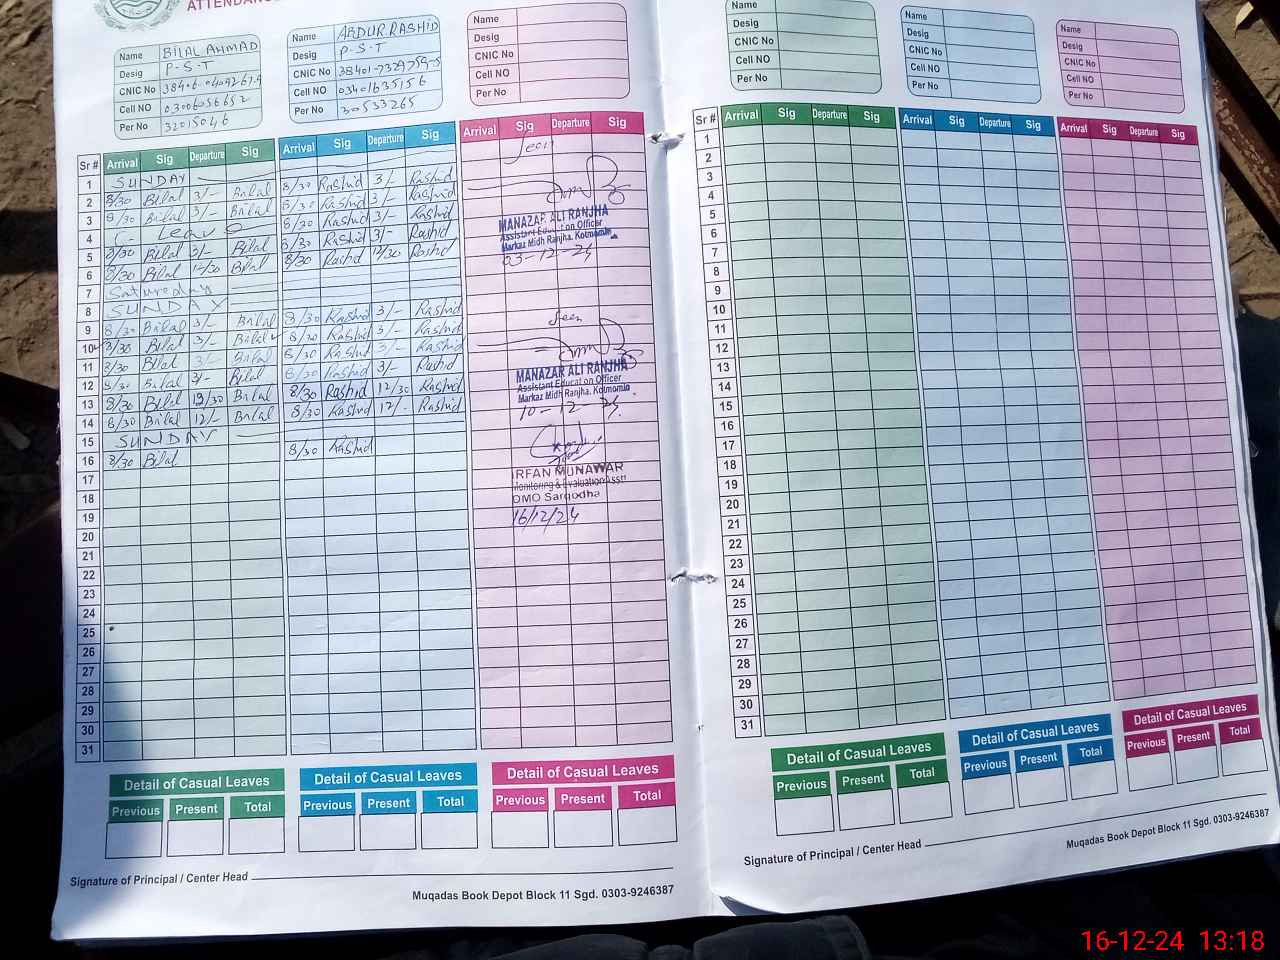 ATTENDANC
Name BILAL AHMAD
Desig P-S-T
CNIC No
Cell NO 03006056652
Per No 32015046
Name ABDUR RASHID
Desig P-S-T
CNIC No 38401-7329759-5
Cell NO 03401635156
Per No 30533265
Name
Desig
CNIC No
Cell NO
Per No
Sr # Arrival Sig Departure Sig Arrival Sig Departure Sig Arrival Sig Departure Sig
1 SUNDAY
2 8/30 Bilal 3/- Bilal 8/30 Rashid 3/- Rashid
3 8/30 Bilal 3/- Bilal 8/30 Rashid 3/- Rashid
4 Leave 8/30 Rashid 3/- Rashid
5 8/30 Bilal 3/- Bilal 8/30 Rashid 3/- Rashid
6 8/30 Bilal 12/30 Bilal 8/30 Rashid 12/30 Rashid
7 Satureday
8 SUNDAY
9 8/30 Bilal 3/- Bilal 8/30 Rashid 3/- Rashid
10 8/30 Bilal 3/- Bilal 8/30 Rashid 3/- Rashid
11 8/30 Bilal 3/- Bilal 8/30 Rashid 3/- Rashid
12 8/30 Bilal 3/- Bilal 8/30 Rashid 3/- Rashid
13 8/30 Bilal 12/30 Bilal 8/30 Rashid 12/30 Rashid
14 8/30 Bilal 12/- Bilal 8/30 Rashid 12/- Rashid
15 SUNDAY
16 8/30 Bilal 8/30 Rashid
17
18
19
20
21
22
23
24
25
26
27
28
29
30
31
Seen
MANAZAR ALI RANJHA
Assistant Education Officer
Markaz Midh Ranjha. Kotmomin
03-12-24
Seen
MANAZAR ALI RANJHA
Assistant Education Officer
Markaz Midh Ranjha. Kotmomin
10-12-24
IRFAN MUNAWAR
Monitoring & Evaluation Asstt
DMO Sargodha
16/12/24
Detail of Casual Leaves Detail of Casual Leaves Detail of Casual Leaves
Previous Present Total Previous Present Total Previous Present Total
Signature of Principal / Center Head
Muqadas Book Depot Block 11 Sgd. 0303-9246387
Name
Desig
CNIC No
Cell NO
Per No
Name
Desig
CNIC No
Cell NO
Per No
Name
Desig
CNIC No
Cell NO
Per No
Sr # Arrival Sig Departure Sig Arrival Sig Departure Sig Arrival Sig Departure Sig
1
2
3
4
5
6
7
8
9
10
11
12
13
14
15
16
17
18
19
20
21
22
23
24
25
26
27
28
29
30
31
Detail of Casual Leaves Detail of Casual Leaves Detail of Casual Leaves
Previous Present Total Previous Present Total Previous Present Total
Signature of Principal / Center Head
Muqadas Book Depot Block 11 Sgd. 0303-9246387
16-12-24 13:18